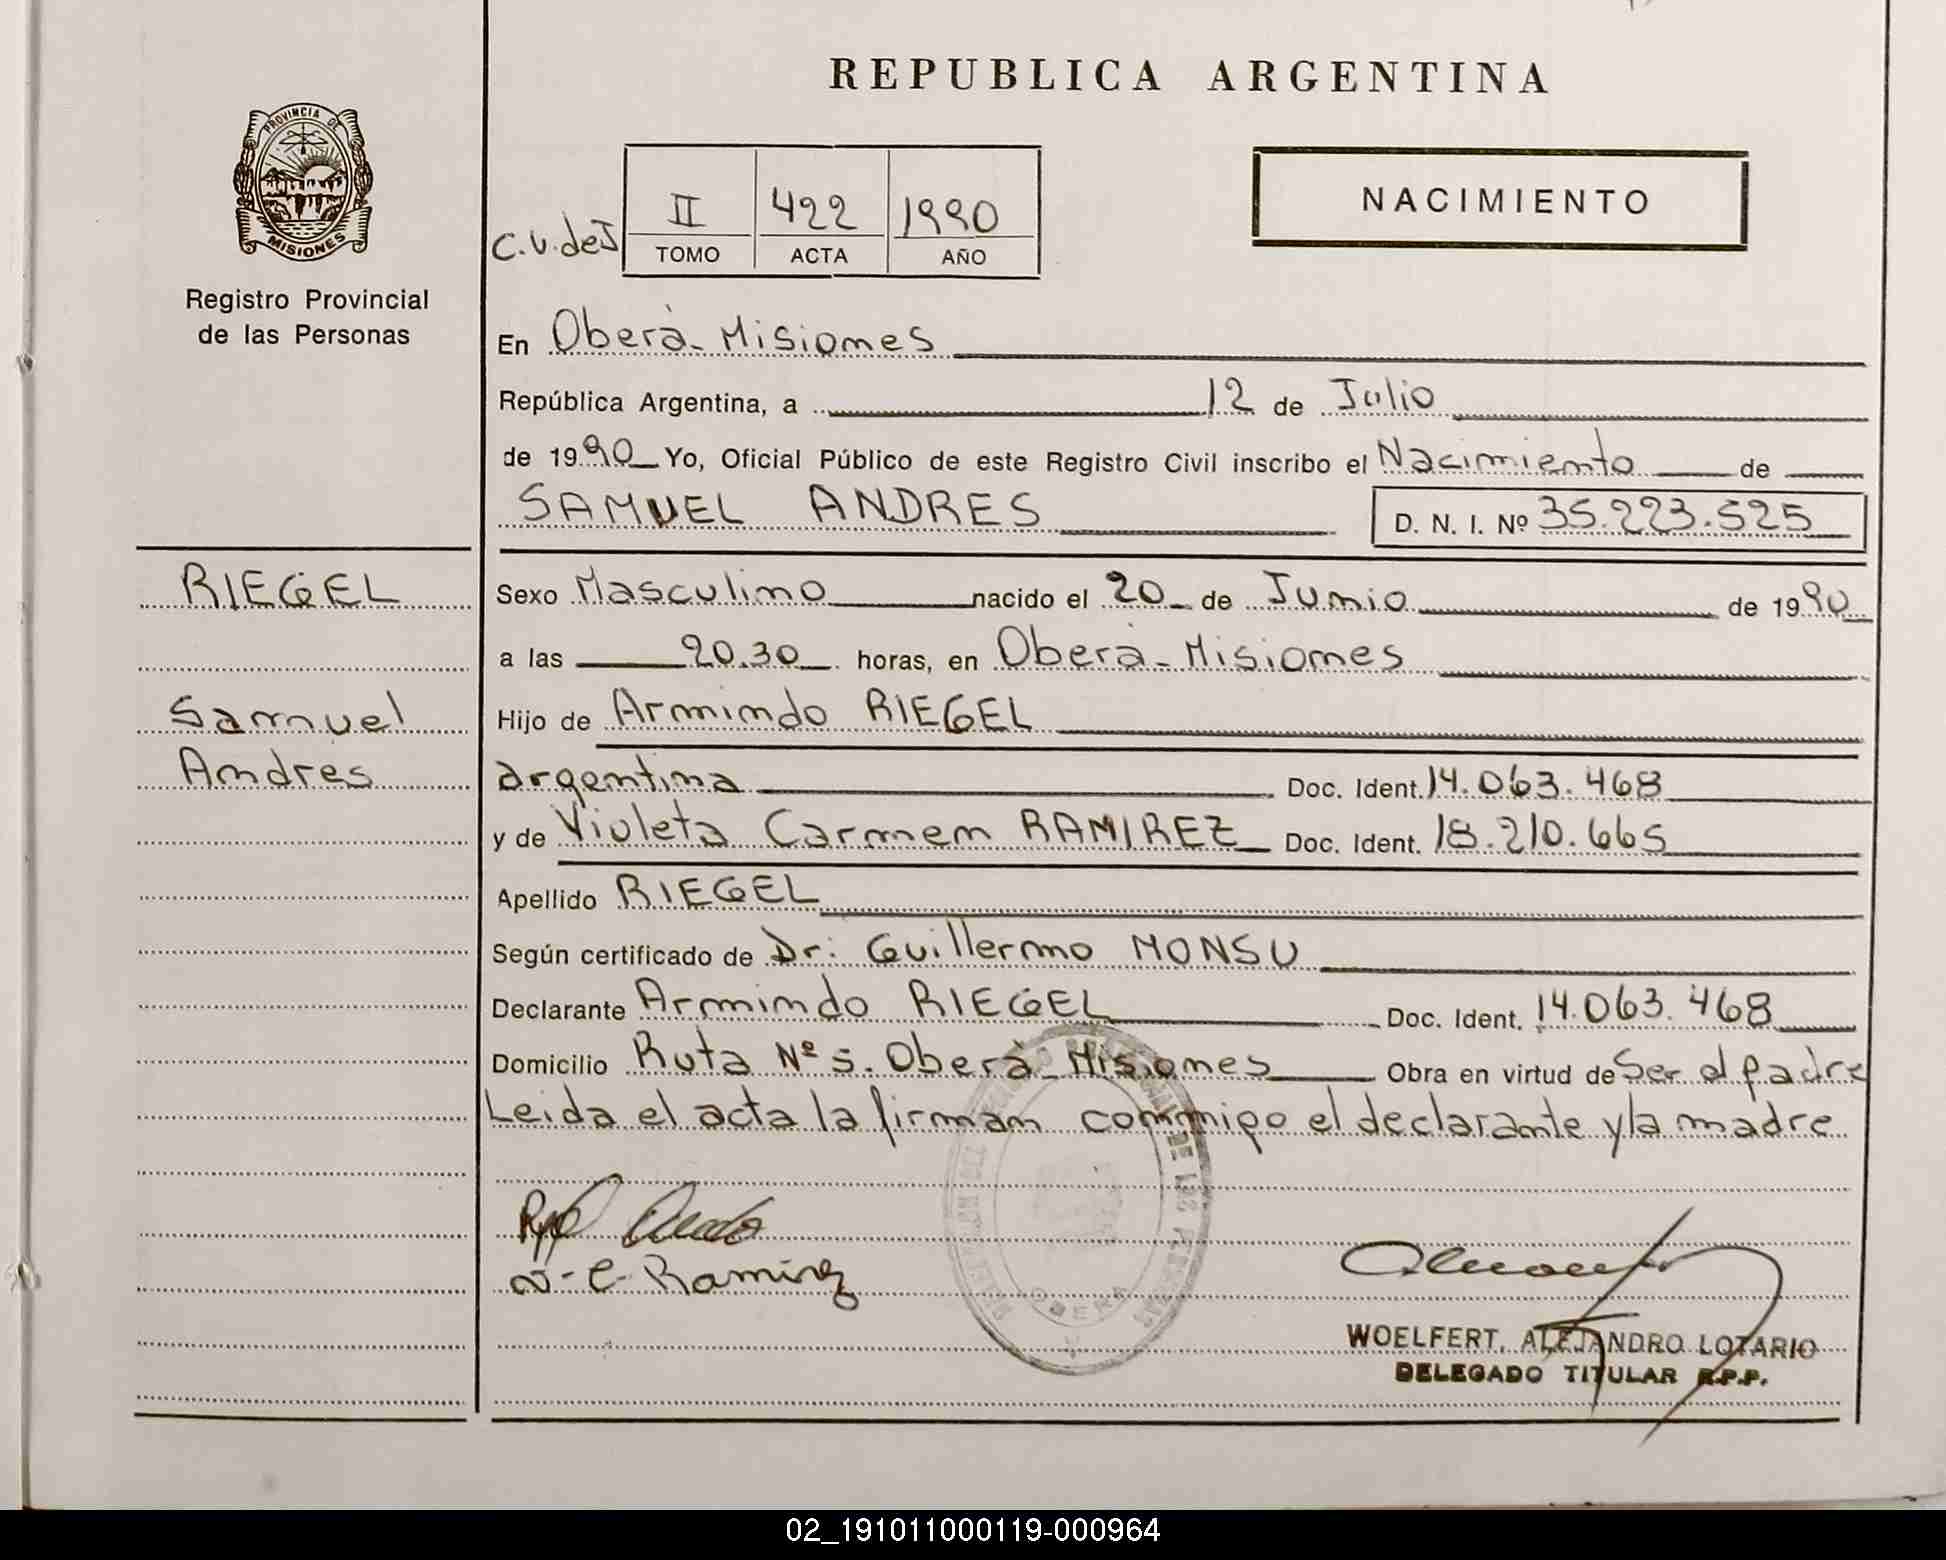 REPUBLICA ARGENTINA
PROVINCIA DE
MISIONES
Registro Provincial
de las Personas
C.V.deJ
II 422 1990
TOMO ACTA AÑO
NACIMIENTO
En Oberà - Misiones
República Argentina, a 12 de Julio
de 1990 Yo, Oficial Público de este Registro Civil inscribo el Nacimiento de
SAMUEL ANDRES D. N. I. Nº 35.223.525
RIEGEL
Samuel
Andres
Sexo Masculino nacido el 20 de Junio de 1990
a las 20.30 horas, en Oberà - Misiones
Hijo de Armindo RIEGEL
argentina Doc. Ident. 14.063.468
y de Violeta Carmen RAMIREZ Doc. Ident. 18.210.665
Apellido RIEGEL
Según certificado de Dr: Guillermo MONSU
Declarante Armindo RIEGEL Doc. Ident. 14.063.468
Domicilio Ruta Nº 5. Oberà - Misiones Obra en virtud de Ser el padre
Leida el acta la firman conmigo el declarante y la madre
OBERA
V. C. Ramirez
WOELFERT, ALEJANDRO LOTARIO
DELEGADO TITULAR R.P.P.
02_191011000119-000964